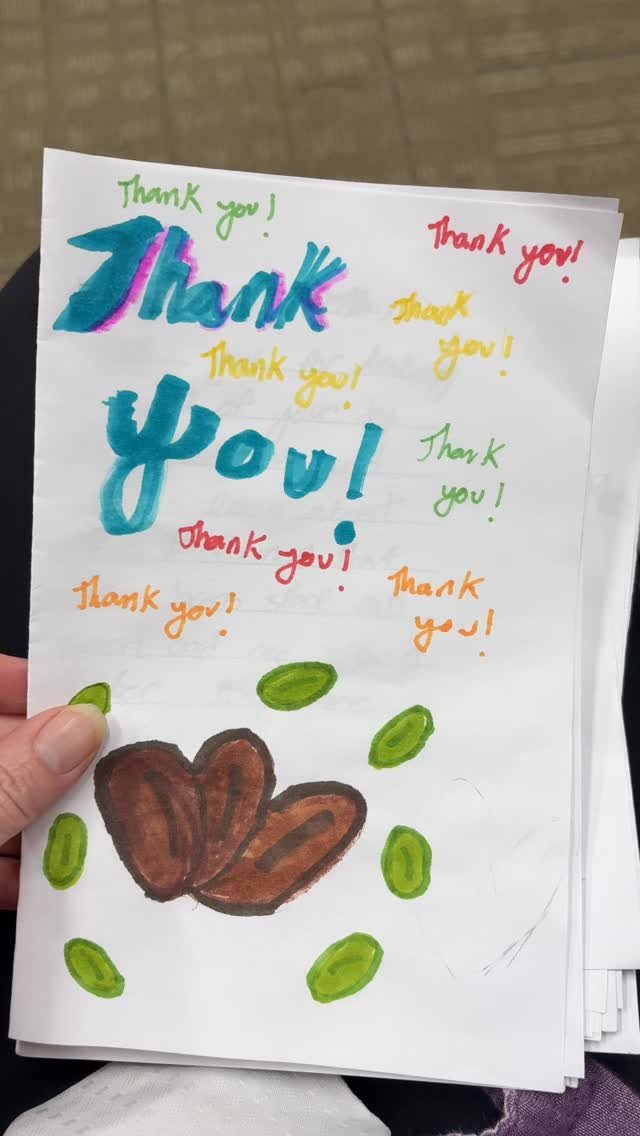 Thank you!
Thank you!
Thank
you!
Thank
you!
Thank you!
Thank
you!
Thank you!
Thank you!
Thank
you!